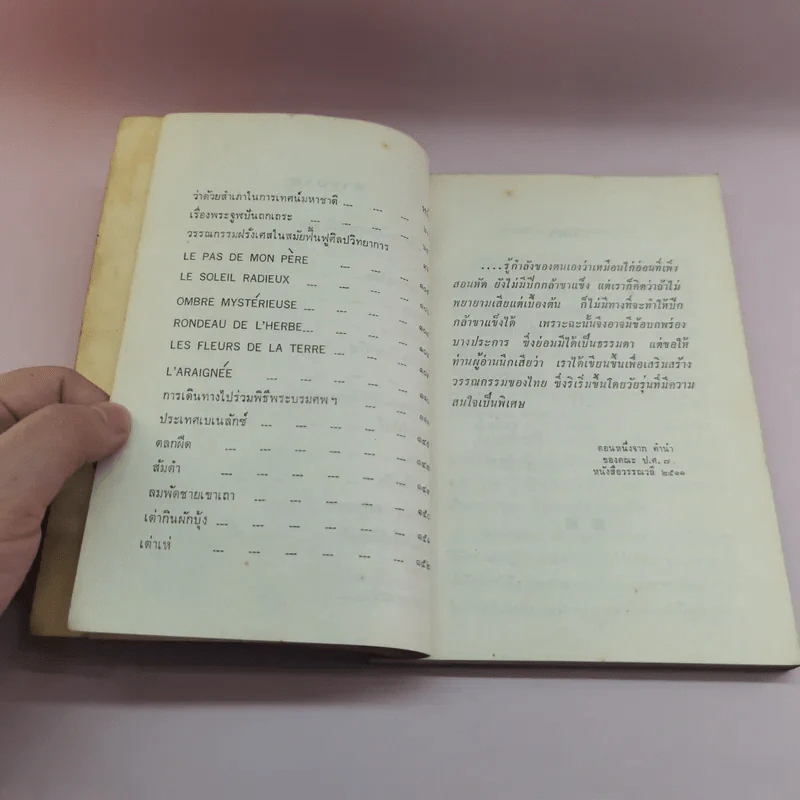 ว่าด้วยสำเภาในการเทศน์มหาชาติ
เรื่องพระฐูพปันถกเถระ
วรรณกรรมฝรั่งเศสในสมัยฟื้นฟูศิลปวิทยาการ
LE PAS DE MON PÈRE
LE SOLEIL RADIEUX
OMBRE MYSTÉRIEUSE
RONDEAU DE L'HERBE
LES FLEURS DE LA TERRE
L'ARAIGNÉE
การเดินทางไปร่วมพิธีพระบรมศพฯ
ประเทศเบเนลักซ์
ตลกฝืด
ส้มตำ
ลมพัดชายเขาเถา
เต่ากินผักบุ้ง
เต่าเห่ ๑๕๒
....รู้กำลังของตนเองว่าเหมือนไก่อ่อนที่เพิ่ง
สอนหัด ยังไม่มีปีกกล้าขาแข็ง แต่เราก็คิดว่าถ้าไม่
พยายามเสียแต่เบื้องต้น ก็ไม่มีทางที่จะทำให้ปีก
กล้าขาแข็งได้ เพราะฉะนั้นจึงอาจมีข้อบกพร่อง
บางประการ ซึ่งย่อมมีได้เป็นธรรมดา แต่ขอให้
ท่านผู้อ่านนึกเสียว่า เราได้เขียนขึ้นเพื่อเสริมสร้าง
วรรณกรรมของไทย ซึ่งริเริ่มขึ้นโดยวัยรุ่นที่มีความ
สนใจเป็นพิเศษ
ตอนหนึ่งจาก คำนำ
ของคณะ ป.ศ. ๗
หนังสือวรรณวลี ๒๕๑๑